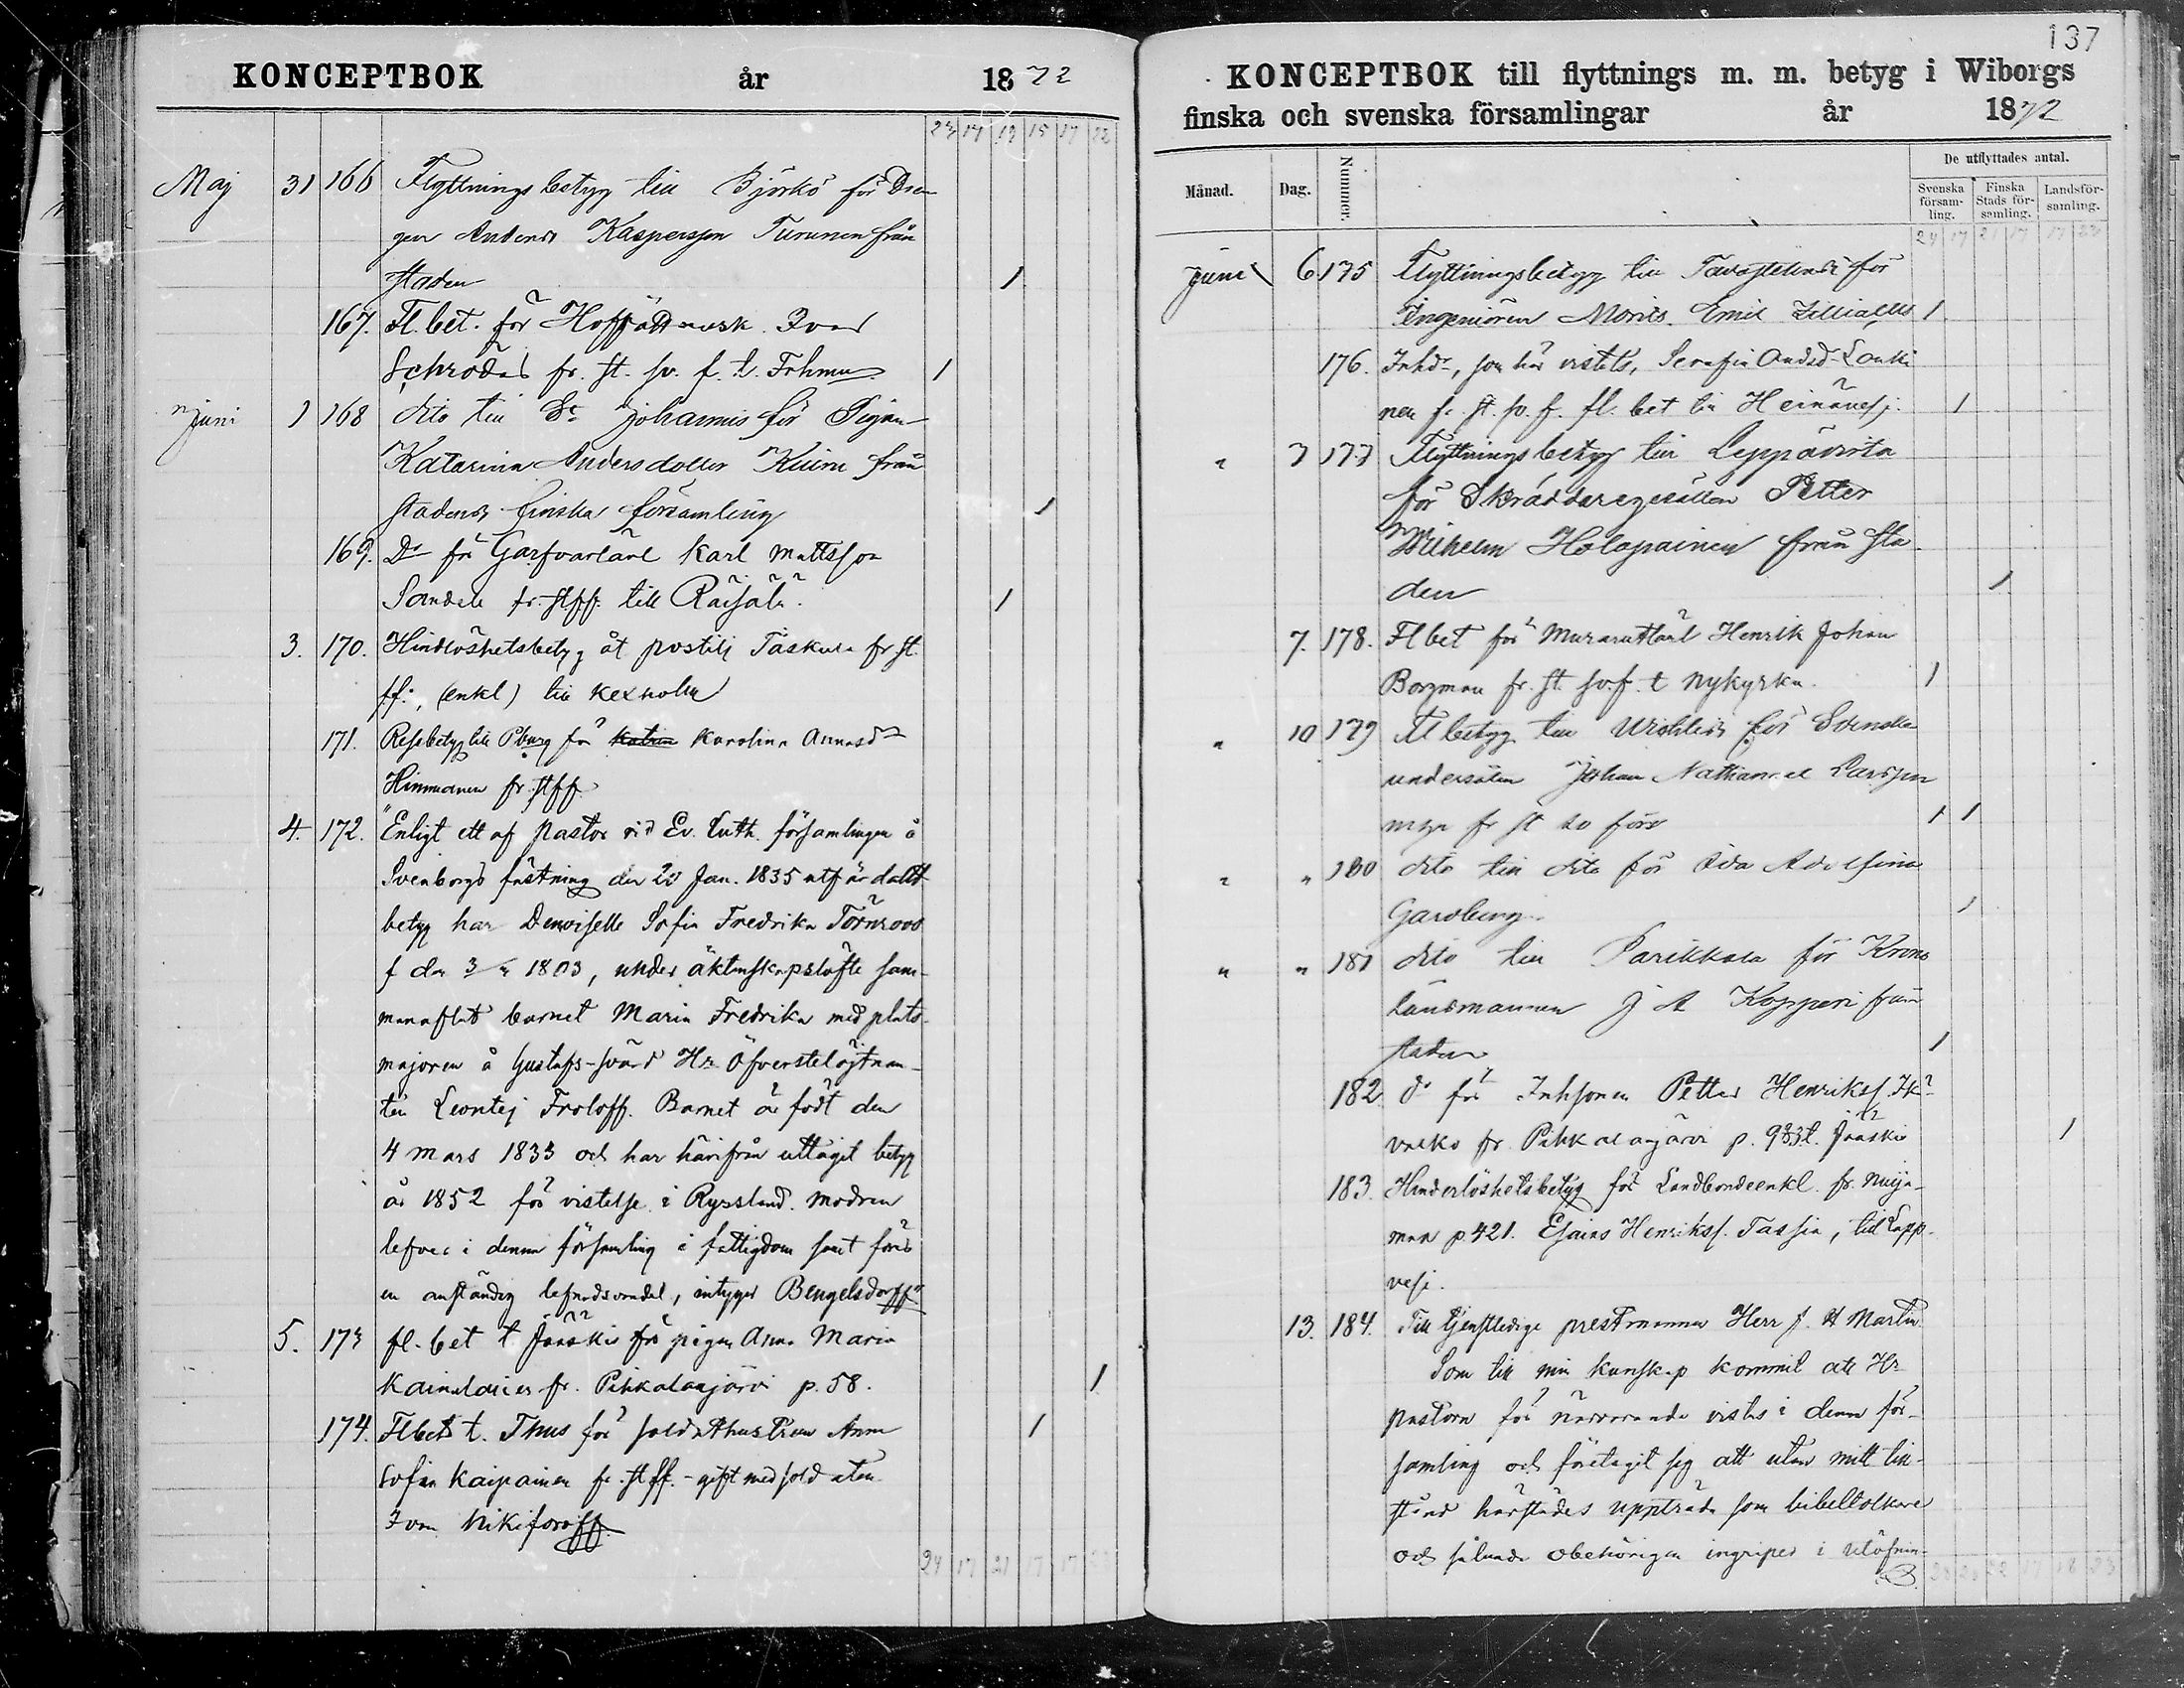 KONCEPTBOK år 1872
23 17 19 15 17 22
Maj 31 166 Flyttningsbetyg till Björkö för Drän
gen Anders Kaspersson Turunen från
staden 1
167. Fl. bet. för Hofrättsausk. Ivar
Schröder fr. st. sv. f. t. Frhmn 1
Juni 1 168 dito till St Johannis för Pigan
Katarina Andersdotter Kuim från
stadens finska församling 1
169. Do för Garfvarlärl Karl Mattsson
Sandell fr. stff. till Räisälä. 1
3. 170. Hindlöshetsbetyg åt postilj Taskula fr st.
ff., (enkl) till Kexholm
171. Resebetyg till Pburg för Katrin Karolina Annasdr
Hinnunen fr. stff.
4. 172. "Enligt ett af Pastor vid Ev. Luth. församlingen å
Sveaborgs fästning den 20 Jan. 1835 utfärdadt
betyg har Demoiselle Sofia Fredrika Törnroos
f den 3/4 1803, under äktenskapslöfte sam-
manaflat barnet Maria Fredrika med plats-
majoren å Gustafs-svärd Hr Öfverstelöjtnan-
ten Leontej Froloff. Barnet är födt den
4 Mars 1833 och har härifrån uttagit betyg
år 1852 för vistelse i Ryssland. Modren
lefver i denna församling i fattigdom samt förer
en anständig lefnadsvandel, intygar Bengelsdorff"
5. 173 fl. bet t Jääskis för pigan Anna Maria
Kainulainen fr. Pihkalanjärvi p. 58. 1
174. Flbet t. Thus för sold. hustrun Anna 1
Sofia Kaipainen fr. stff. - gift med sold aten
Ivan Nikiforoff.
24 17 21 17 17 22
137
KONCEPTBOK till flyttnings m. m. betyg i Wiborgs
finska och svenska församlingar år 1872
Månad. Dag. Nummer. De utflyttades antal.
Svenska församling. Finska Stads församling. Landsförsamling.
24 17 21 17 17 22
Juni 6 175 Flyttningsbetyg till Tavastehus för
Ingeniören Morits Emil Zilliacus 1
176. Inhd, som här vistats, Serafia Andsd Lonki
nen fr. st. sv. f. fl. bet till Heinävesi. 1
" 7 177 Flyttningsbetyg till Leppävirta
för Skräddaregesällen Petter
Wilhelm Holopainen från sta
den 1
7. 178. Flbet för Murarelärl Henrik Johan
Borgman fr. st. sv. f. t Nykyrka. 1
" 10 179 Fl betyg till för Svenska
undersåten Johan Nathanael Larsson
fr st sv förs 1 1
" " 180 dito till dito för Ida Adolfina
Garoberg. 1
" " 181 dito till Parikkala för Krono
länsmannen J A Kopperi från
staden 1
182. do för Inhsonen Petter Henrikss. Ik
valko fr. Pihkalanjärvi p. 983 t. Jääskis 1
183. Hinderlöshetsbetyg för Landbondeenkl. fr. Nuija-
maa p 421. Esaias Henrikss. Tassia, till Lapp-
vesi.
13. 184. Till tjenstledige prestmannen Herr J. A Martin
Som till min kunskap kommit att Hr
pastorn för närvarande vistas i denna för-
samling och företagit sig att utan mitt till-
stånd härstädes uppträda som bibeltolkare
och sålunda obehörigen ingriper i utöfnin-